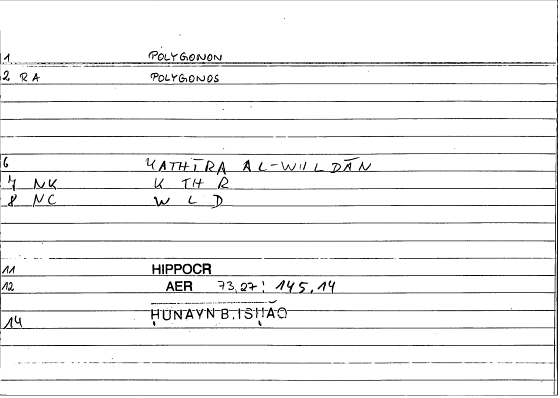 1 POLYGONON
2 RA POLYGONOS
6 KATHĪRA AL-WILDĀN
7 NK K TH R
8 NC W L D
11 HIPPOCR
12 AER 73,27: 145,14
14 ḤUNAYN B. ISḤĀQ